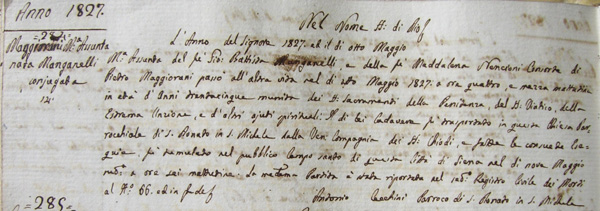 Anno 1827.
Nel Nome SS: di Dio
Maggiorani M.a Assunta
nata Manganelli
conjugata
L'Anno del Signore 1827. ed il dì otto Maggio
M.a Assunta del fu Gio: Battista Manganelli, e della fu Maddalena Nencioni Consorte di
Pietro Maggiorani passò all'altra vita nel dì otto Maggio 1827. a ore quattro, e mezza mattutine
in età d'Anni trentacinque munita dei SS. Sacramenti della Penitenza, del SS. Viatico, della
Estrema Unzione, e d'altri ajuti spirituali: Il di lei Cadavere fu trasportato in questa Chiesa Par-
rochiale di S. Donato in S. Michele dalla Ven: Compagnia dei SS. Chiodi, e fattele le consuete Ese-
quie, fu tumulato nel pubblico Campo santo di questa Città di Siena nel dì nove Maggio
a ore sei mattutine. La medesima Partita è stata riportata nel Registro Civile dei Morti
al N.o 66. ed in fede
Antonio Cecchini Parroco di S. Donato in S. Michele
285